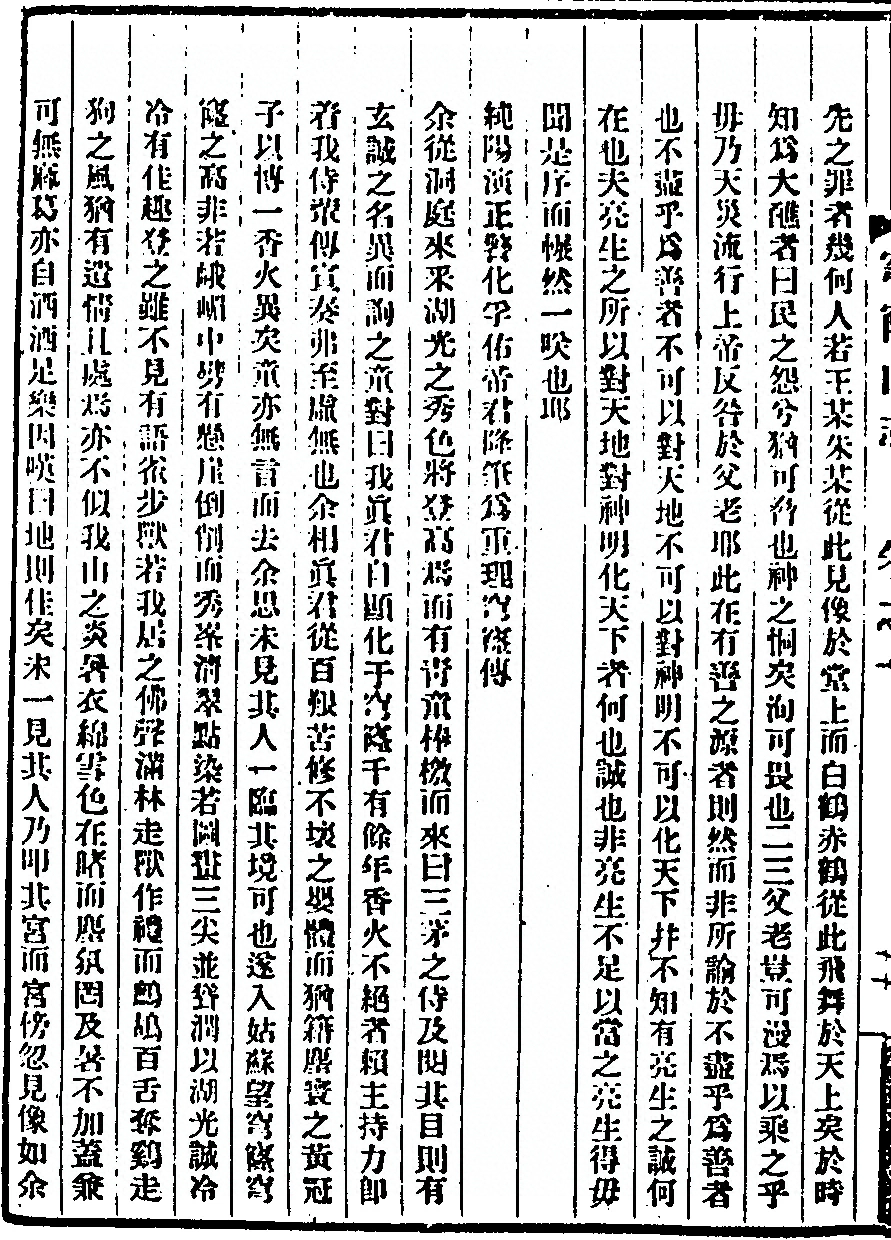 先之罪者幾何人若王某朱某從此見像於堂上而白鶴赤鶴從此飛舞於天上矣於時
知爲大醮者曰民之怨兮猶可咎也神之恫矣洵可畏也二三父老豈可漫焉以乘之乎
毋乃天災流行上帝反咎於父老耶此在有善之源者則然而非所論於不盡乎爲善者
也不盡乎爲善者不可以對天地不可以對神明不可以化天下并不知有亮生之誠何
在也夫亮生之所以對天地對神明化天下者何也誠也非亮生不足以當之亮生得毋
聞是序而惄然一唉也耶
純陽演正警化孚佑帝君降筆爲重理穹窿傳
余從洞庭來采湖光之秀色將登高焉而有青童棒檄而來曰三茅之侍及閱其目則有
玄誠之名異而詢之童對曰我眞君自顯化于穹窿千有餘年香火不絕者賴主持力卽
若我侍眾傳宣奏弗至虛無也余相眞君從百艱苦修不壞之嬰體而猶籍塵寰之黃冠
子以博一香火異矣童亦無言而去余思未見其人一臨其境可也遂入姑蘇望穹窿穹
窿之高非若峨嵋中劈有懸崖倒削而秀峯濟翠點染若圖畫三尖並聳潤以湖光誠冷
冷有佳趣登之雖不見有語雀步獸若我居之佛聲滿林走獸作禮而鸕鳩百舌奪鷄走
狗之風猶有遺情且處焉亦不似我山之炎暑衣綿雪色在睹而塵氛罔及暑不加蓋兼
可無麻葛亦自洒洒足樂因嘆曰地則佳矣未一見其人乃叩其宮而宮傍忽見像如余